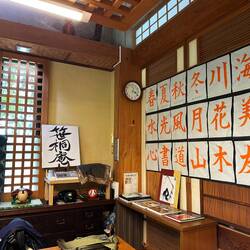 笹桐庵
春夏秋冬川海
水光風月花美
心書道山木